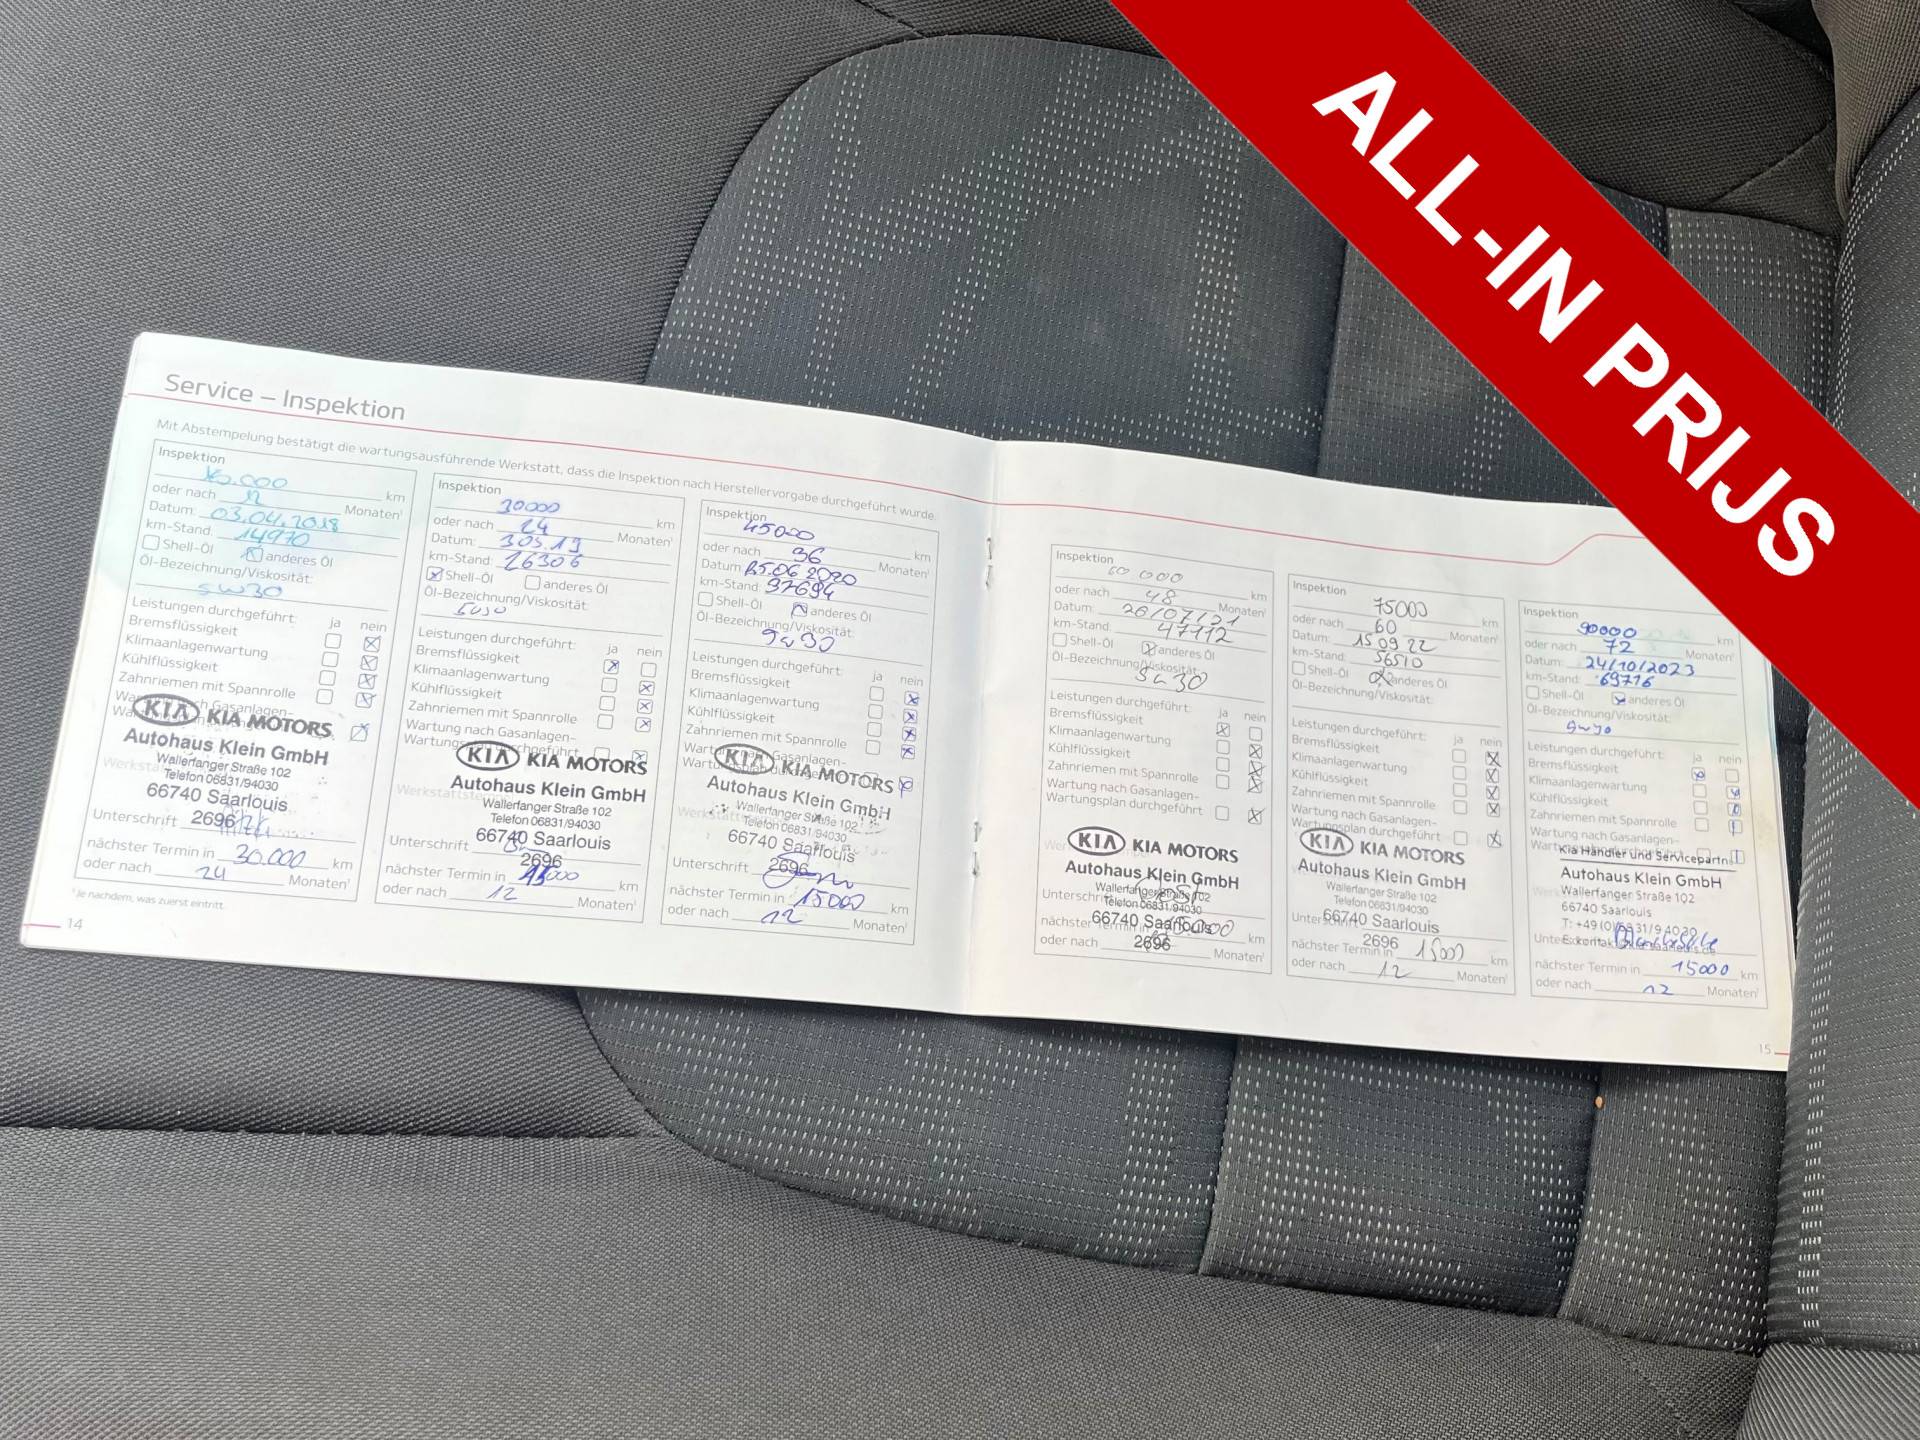 ALL-IN PRIJS
Service – Inspektion
Mit Abstempelung bestätigt die wartungsausführende Werkstatt, dass die Inspektion nach Herstellervorgabe durchgeführt wurde.
Inspektion
km
oder nach 12 Monaten¹
Datum: 03.04.2018
km-Stand: 14970
Shell-Öl anderes Öl
Öl-Bezeichnung/Viskosität:
5W30
Leistungen durchgeführt: ja nein
Bremsflüssigkeit
Klimaanlagenwartung
Kühlflüssigkeit
Zahnriemen mit Spannrolle
KIA KIA MOTORS
Autohaus Klein GmbH
Wallerfanger Straße 102
Telefon 06831/94030
66740 Saarlouis
Unterschrift 2696
nächster Termin in 30.000 km
oder nach 24 Monaten¹
¹Je nachdem, was zuerst eintritt.
14
Inspektion
30000 km
oder nach 24 Monaten¹
Datum: 
km-Stand: 26306
Shell-Öl anderes Öl
Öl-Bezeichnung/Viskosität:
5W30
Leistungen durchgeführt: ja nein
Bremsflüssigkeit
Klimaanlagenwartung
Kühlflüssigkeit
Zahnriemen mit Spannrolle
Wartung nach Gasanlagen-
Wartungsplan durchgeführt
KIA KIA MOTORS
Autohaus Klein GmbH
Wallerfanger Straße 102
Telefon 06831/94030
66740 Saarlouis
Unterschrift 2696
nächster Termin in km
oder nach 12 Monaten¹
Inspektion
45000 km
oder nach 36 Monaten¹
Datum: 06 2020
km-Stand: 37694
Shell-Öl anderes Öl
Öl-Bezeichnung/Viskosität:
5W30
Leistungen durchgeführt: ja nein
Bremsflüssigkeit
Klimaanlagenwartung
Kühlflüssigkeit
Zahnriemen mit Spannrolle
Wartung nach Gasanlagen-
KIA KIA MOTORS
Autohaus Klein GmbH
Wallerfanger Straße 102
Telefon 06831/94030
66740 Saarlouis
Unterschrift 2696
nächster Termin in 15000 km
oder nach 12 Monaten¹
Inspektion
60 000 km
oder nach 48 Monaten¹
Datum: 26/07/21
km-Stand: 47112
Shell-Öl anderes Öl
Öl-Bezeichnung/Viskosität:
5W30
Leistungen durchgeführt: ja nein
Bremsflüssigkeit
Klimaanlagenwartung
Kühlflüssigkeit
Zahnriemen mit Spannrolle
Wartung nach Gasanlagen-
Wartungsplan durchgeführt
KIA KIA MOTORS
Autohaus Klein GmbH
Wallerfanger Straße 102
Telefon 06831/94030
66740 Saarlouis
nächster Termin in km
2696
oder nach Monaten¹
Inspektion
75000 km
oder nach 60 Monaten¹
Datum: 15 09 22
km-Stand: 56510
Shell-Öl anderes Öl
Öl-Bezeichnung/Viskosität:
Leistungen durchgeführt: ja nein
Bremsflüssigkeit
Klimaanlagenwartung
Kühlflüssigkeit
Zahnriemen mit Spannrolle
Wartung nach Gasanlagen-
Wartungsplan durchgeführt
KIA KIA MOTORS
Autohaus Klein GmbH
Wallerfanger Straße 102
Telefon 06831/94030
66740 Saarlouis
2696
nächster Termin in 15000 km
oder nach 12 Monaten¹
Inspektion
90000 km
oder nach 72 Monaten¹
Datum: 24/10/2023
km-Stand: 69716
Shell-Öl anderes Öl
Öl-Bezeichnung/Viskosität:
5W30
Leistungen durchgeführt: ja nein
Bremsflüssigkeit
Klimaanlagenwartung
Kühlflüssigkeit
Zahnriemen mit Spannrolle
Wartung nach Gasanlagen-
Kia Händler und Servicepartner
Autohaus Klein GmbH
Wallerfanger Straße 102
66740 Saarlouis
T: +49 (0)6831/9 40 30
nächster Termin in 15000 km
oder nach 12 Monaten¹
15